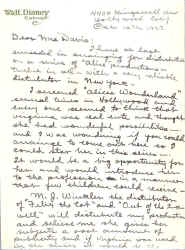 Walt. Disney
Cartoonist
4406 Kingswell Ave
Hollywood Calif
Oct 16 - 1923
Dear Mrs Davis:
I have at last
succeeded in arranging for distribution
on a series of "Alice" productions
with a very reliable
distributor New York
I screened "Alices Wonderland"
several times in Hollywood and
every one seemed to think that
Virginia was real cute and thought
she had wonderful possibilities -
and I was wondering if you would
arrange to come out here so I
could star her in the series -
It would be a big opportunity for
her and would introduce her
to the profession in a manner
that few children could receive -
M. J. Winkler the distributor
of "Felix the Cat" and "Out of the Ink
well" will distribute my product
and believe me she gives her
subjects a most amount of
publicity and if Virginia was used